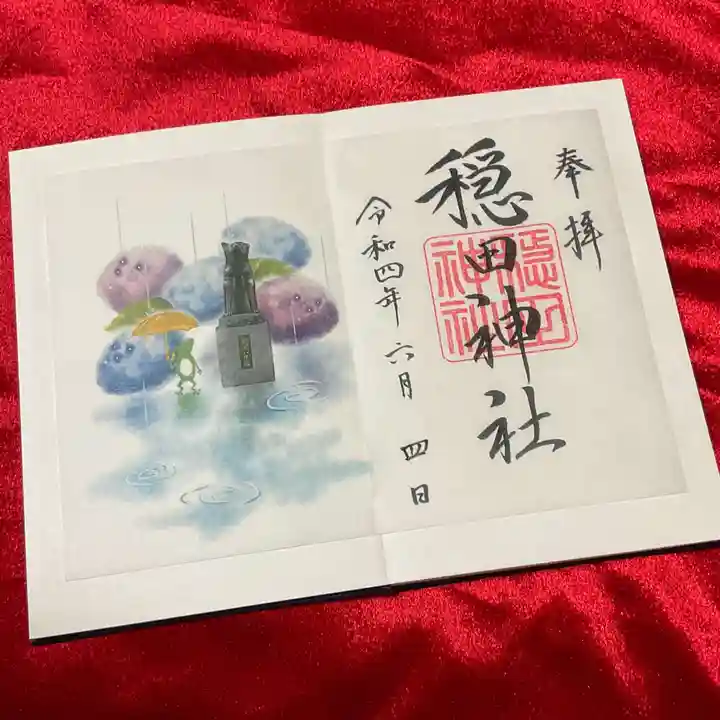 奉拝
穏田神社
穏田神社
令和四年六月四日